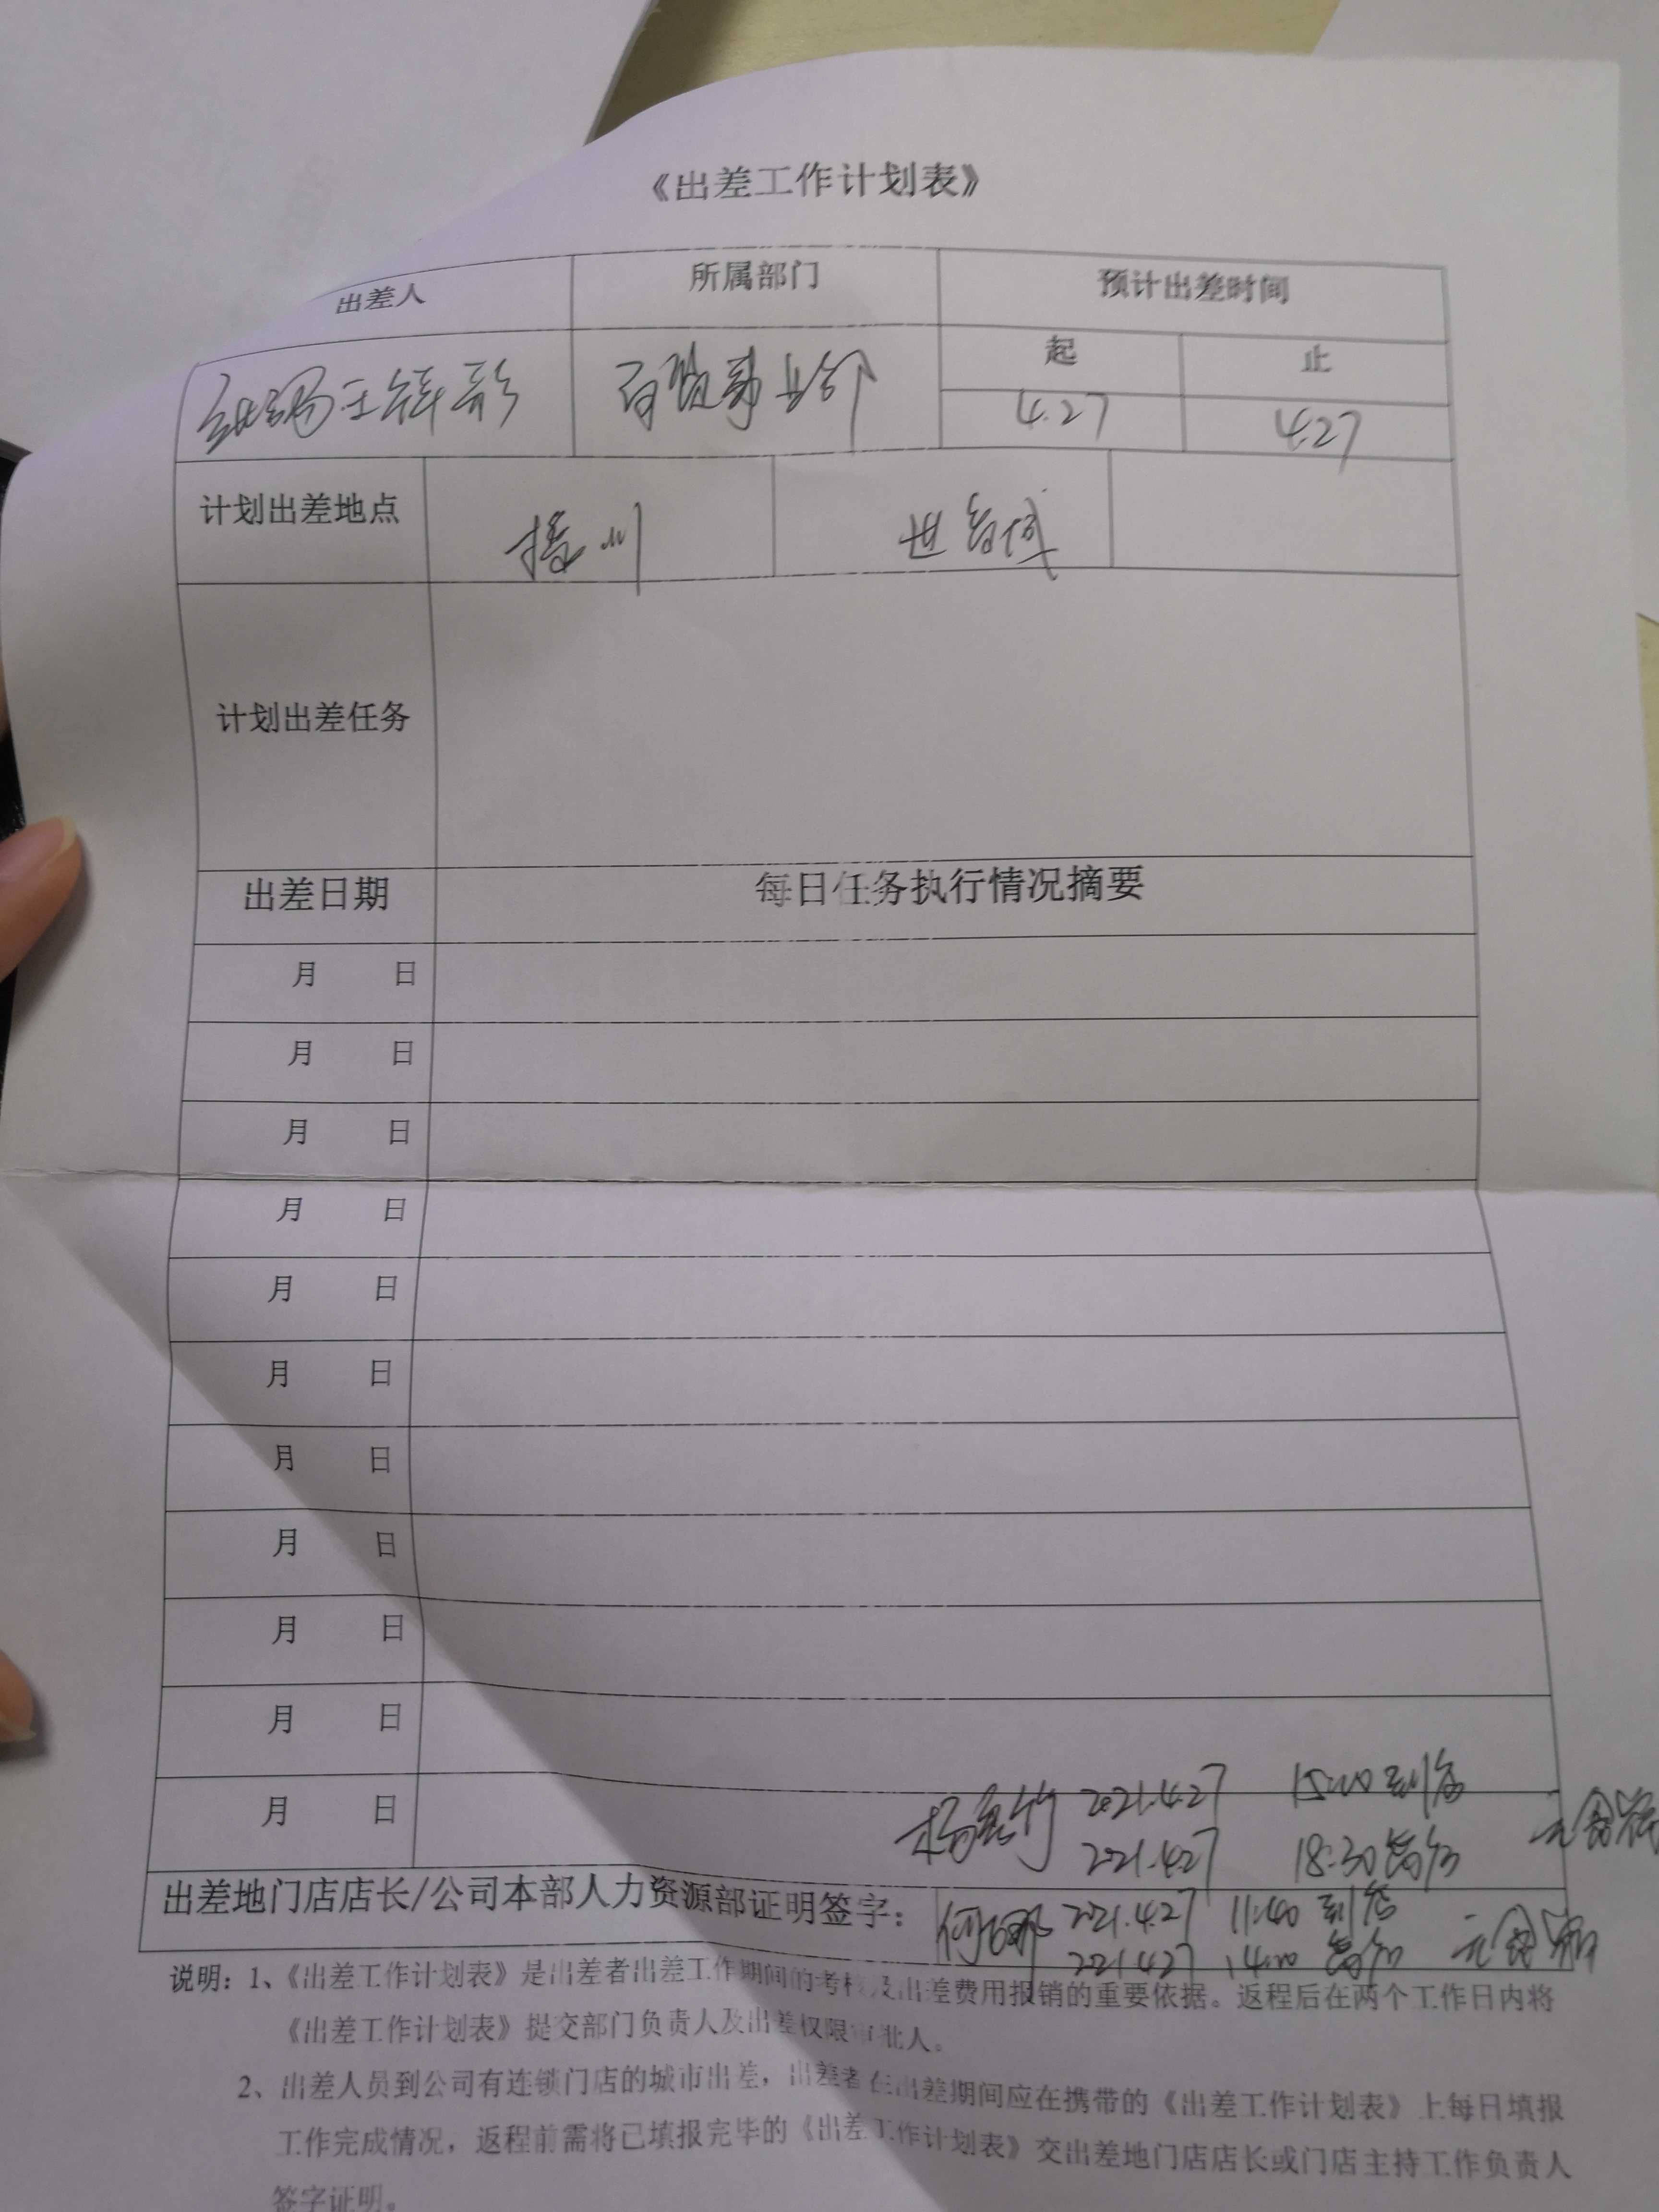 《出差工作计划表》
出差人 所属部门 预计出差时间
起 止
百货事业部 4.27 4.27
计划出差地点 播川 世纪城
计划出差任务
出差日期 每日任务执行情况摘要
月 日
月 日
月 日
月 日
月 日
月 日
月 日
月 日
月 日
月 日
月 日
2021.4.27 到店
2021.4.27 18:30 离店
出差地门店店长/公司本部人力资源部证明签字：
2021.4.27 11:40 到店
2021.4.27 离店
说明：1、《出差工作计划表》是出差者出差工作期间的考核及出差费用报销的重要依据。返程后在两个工作日内将
《出差工作计划表》提交部门负责人及出差权限审批人。
2、出差人员到公司有连锁门店的城市出差，出差者在出差期间应在携带的《出差工作计划表》上每日填报
工作完成情况，返程前需将已填报完毕的《出差工作计划表》交出差地门店店长或门店主持工作负责人
签字证明。